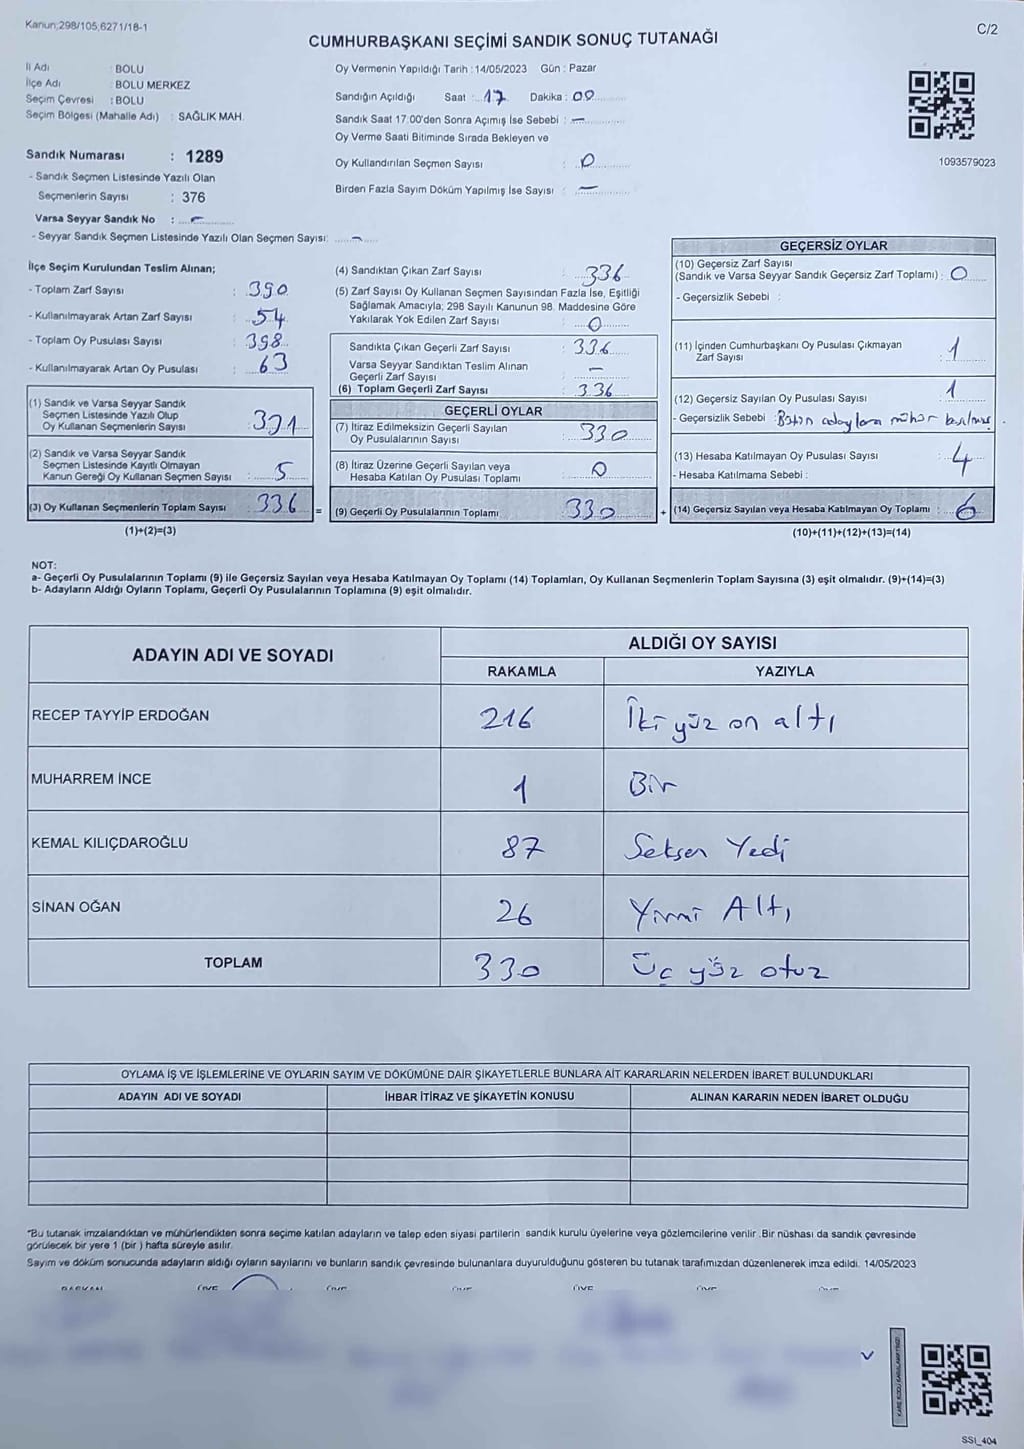 Kanun;298/105,6271/18-1
C/2
CUMHURBAŞKANI SEÇİMİ SANDIK SONUÇ TUTANAĞI
İl Adı : BOLU
İlçe Adı : BOLU MERKEZ
Seçim Çevresi : BOLU
Seçim Bölgesi (Mahalle Adı) : SAĞLIK MAH.
Sandık Numarası : 1289
- Sandık Seçmen Listesinde Yazılı Olan
Seçmenlerin Sayısı : 376
Varsa Seyyar Sandık No : –
- Seyyar Sandık Seçmen Listesinde Yazılı Olan Seçmen Sayısı: –
Oy Vermenin Yapıldığı Tarih :14/05/2023 Gün : Pazar
Sandığın Açıldığı Saat : 17 Dakika : 00
Sandık Saat 17:00'den Sonra Açımış İse Sebebi : –
Oy Verme Saati Bitiminde Sırada Bekleyen ve
Oy Kullandırılan Seçmen Sayısı : 0
Birden Fazla Sayım Döküm Yapılmış İse Sayısı : –
1093579023
İlçe Seçim Kurulundan Teslim Alınan;
- Toplam Zarf Sayısı : 390
- Kullanılmayarak Artan Zarf Sayısı : 54
- Toplam Oy Pusulası Sayısı : 398
- Kullanılmayarak Artan Oy Pusulası : 63
(1) Sandık ve Varsa Seyyar Sandık
Seçmen Listesinde Yazılı Olup
Oy Kullanan Seçmenlerin Sayısı : 331
(2) Sandık ve Varsa Seyyar Sandık
Seçmen Listesinde Kayıtlı Olmayan
Kanun Gereği Oy Kullanan Seçmen Sayısı : 5
(3) Oy Kullanan Seçmenlerin Toplam Sayısı : 336
(1)+(2)=(3)
(4) Sandıktan Çıkan Zarf Sayısı : 336
(5) Zarf Sayısı Oy Kullanan Seçmen Sayısından Fazla İse, Eşitliği
Sağlamak Amacıyla; 298 Sayılı Kanunun 98. Maddesine Göre
Yakılarak Yok Edilen Zarf Sayısı : 0
Sandıkta Çıkan Geçerli Zarf Sayısı : 336
Varsa Seyyar Sandıktan Teslim Alınan
Geçerli Zarf Sayısı : –
(6) Toplam Geçerli Zarf Sayısı : 336
GEÇERLİ OYLAR
(7) İtiraz Edilmeksizin Geçerli Sayılan
Oy Pusulalarının Sayısı : 330
(8) İtiraz Üzerine Geçerli Sayılan veya
Hesaba Katılan Oy Pusulası Toplamı : 0
= (9) Geçerli Oy Pusulalarının Toplamı : 330
GEÇERSİZ OYLAR
(10) Geçersiz Zarf Sayısı
(Sandık ve Varsa Seyyar Sandık Geçersiz Zarf Toplamı) : 0
- Geçersizlik Sebebi :
(11) İçinden Cumhurbaşkanı Oy Pusulası Çıkmayan
Zarf Sayısı : 1
(12) Geçersiz Sayılan Oy Pusulası Sayısı : 1
- Geçersizlik Sebebi : Bütün adaylara mühür basılmış.
(13) Hesaba Katılmayan Oy Pusulası Sayısı : 4
- Hesaba Katılmama Sebebi :
+ (14) Geçersiz Sayılan veya Hesaba Katılmayan Oy Toplamı : 6
(10)+(11)+(12)+(13)=(14)
NOT:
a- Geçerli Oy Pusulalarının Toplamı (9) ile Geçersiz Sayılan veya Hesaba Katılmayan Oy Toplamı (14) Toplamları, Oy Kullanan Seçmenlerin Toplam Sayısına (3) eşit olmalıdır. (9)+(14)=(3)
b- Adayların Aldığı Oyların Toplamı, Geçerli Oy Pusulalarının Toplamına (9) eşit olmalıdır.
ADAYIN ADI VE SOYADI
ALDIĞI OY SAYISI
RAKAMLA YAZIYLA
RECEP TAYYİP ERDOĞAN 216 İki yüz on altı
MUHARREM İNCE 1 Bir
KEMAL KILIÇDAROĞLU 87 Seksen Yedi
SİNAN OĞAN 26 Yirmi Altı
TOPLAM 330 Üç yüz otuz
OYLAMA İŞ VE İŞLEMLERİNE VE OYLARIN SAYIM VE DÖKÜMÜNE DAİR ŞİKAYETLERLE BUNLARA AİT KARARLARIN NELERDEN İBARET BULUNDUKLARI
ADAYIN ADI VE SOYADI İHBAR İTİRAZ VE ŞİKAYETİN KONUSU ALINAN KARARIN NEDEN İBARET OLDUĞU
*Bu tutanak imzalandıktan ve mühürlendikten sonra seçime katılan adayların ve talep eden siyasi partilerin sandık kurulu üyelerine veya gözlemcilerine verilir .Bir nüshası da sandık çevresinde
görülecek bir yere 1 (bir ) hafta süreyle asılır.
Sayım ve döküm sonucunda adayların aldığı oyların sayılarını ve bunların sandık çevresinde bulunanlara duyurulduğunu gösteren bu tutanak tarafımızdan düzenlenerek imza edildi. 14/05/2023
SSI_404